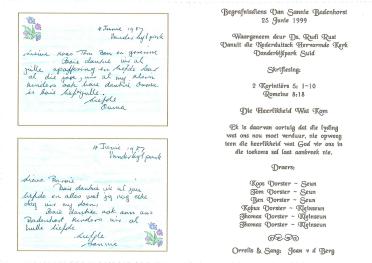 4 Junie 1987
Vanderbylpark
Liewe
Baie dankie vir al
julle opoffering en liefde
al die jare, vir al my
kinders ook baie dankie Ouma
is baie
liefde
Ouma
4 Junie 1987
Vanderbylpark
Liewe
Baie dankie vir al jou
liefde en alles wat jy nog elke
dag vir my doen.
Baie dankie ook aan ons
Badenhorst kinders vir al
hulle liefde
liefde
Sannie
Begrafnisdiens Van Sannie Badenhorst
25 Junie 1999
Waargeneem deur Ds. Rudi Rust
Vanuit die Nederduitsch Hervormde Kerk
Vanderbijlpark Suid
Skriflesing:
2 Korintiërs 5: 1-10
Romeine 8:18
Die Heerlikheid Wat Kom
Ek is daarvan oortuig dat die lyding
wat ons nou moet verduur, nie opweeg
teen die heerlikheid wat God vir ons in
die toekoms sal laat aanbreek nie.
Draers:
Koos Vorster - Seun
Tom Vorster - Seun
Ben Vorster - Seun
Kobus Vorster - Kleinseun
Thomas Vorster - Kleinseun
Thomas Vorster - Kleinseun
Orrelis & Sang: Joan v d Berg